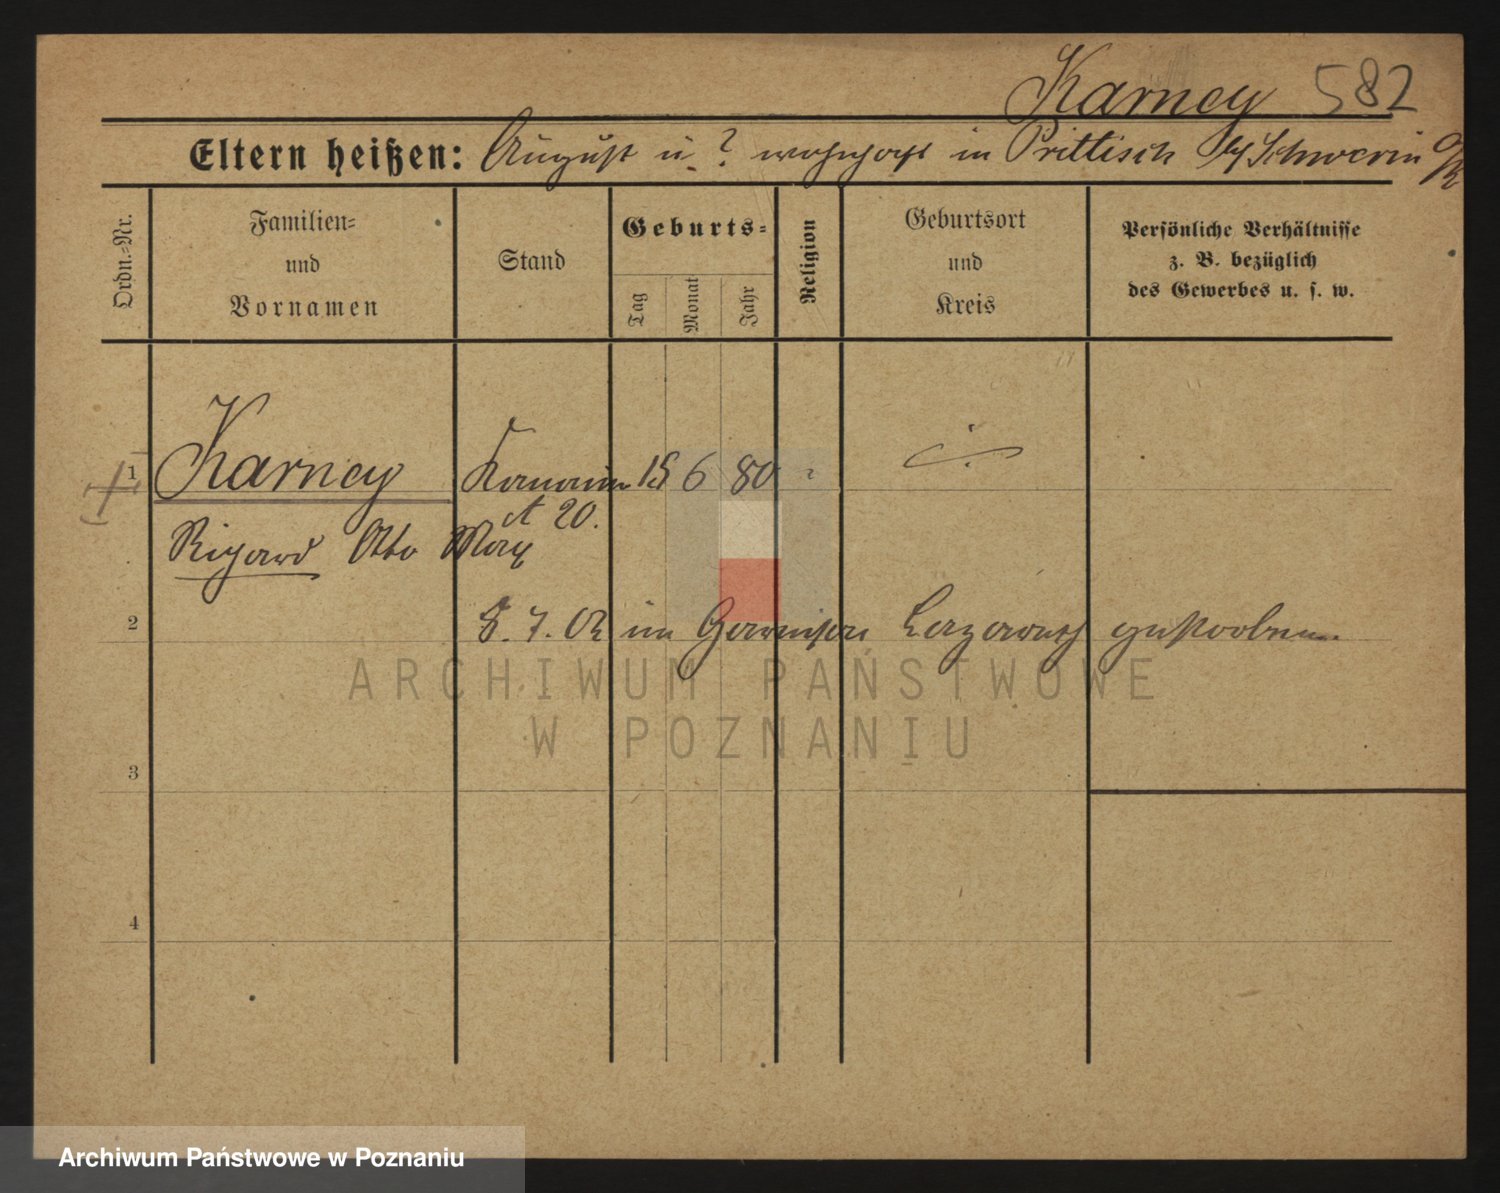 Karney 582
Eltern heißen: August u ? wohnhaft in Prittisch b/ Schwerin a/W
Ordn.-Nr.
Familien-
und
Vornamen
Stand
Geburts-
Tag
Monat
Jahr
Religion
Geburtsort
und
Kreis
Persönliche Verhältnisse
z. B. bezüglich
des Gewerbes u. s. w.
1 Karney Kanonier 15 6 80 ÷
A 20.
Richard Otto Max
2
8. 7. 02 im Garnison Lazareth gestorben
ARCHIWUM PAŃSTWOWE
W POZNANIU
3
4
Archiwum Państwowe w Poznaniu